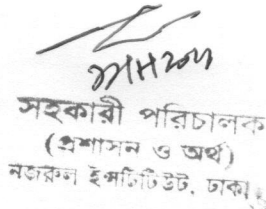 সহকারী পরিচালক
(প্রশাসন ও অর্থ)
নজরুল ইন্সটিটিউট, ঢাকা